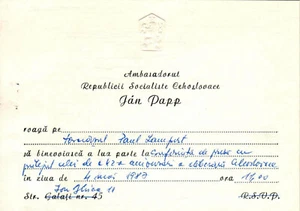 Ambasadorul
Republicii Socialiste Cehoslovace
Ján Papp
roagă pe
Paul
să binevoiască a lua parte la Conferința de presă cu
prilejul celei de a 42-a aniversări a eliberării
în ziua de 4 mai 1987 ora 11,00
Str. Galați nr. 45 R.S.V.P.
Ion Ghica 11